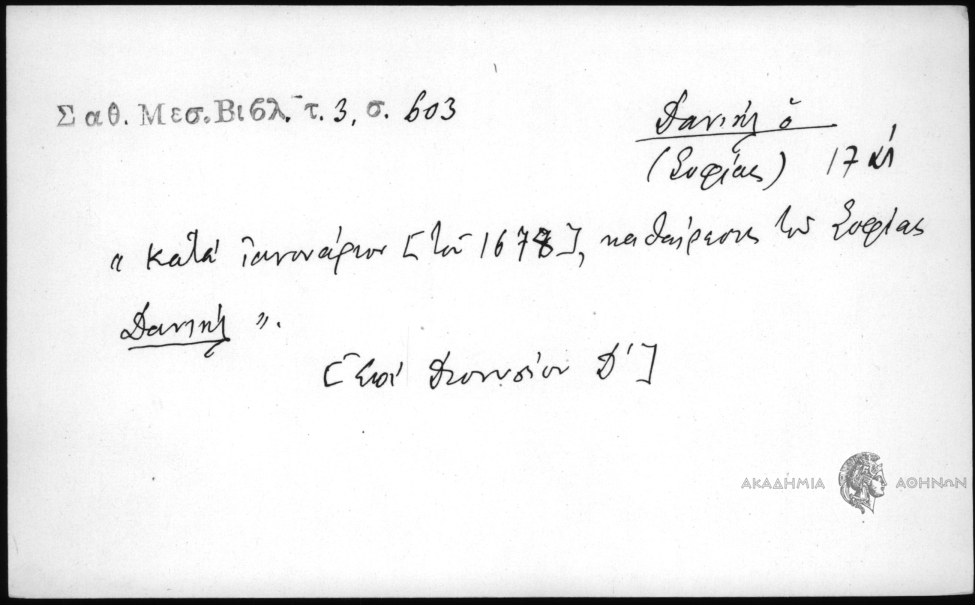 Σαθ. Μεσ. Βιβλ. τ. 3, σ. 603
Δανιήλ ὁ
(Σοφίας) 17 αἰ
« Κατά ἰανουάριον [τοῦ 1678], καθαίρεσις τοῦ Σοφίας
Δανιήλ ».
[Ἐπί Διονυσίου Δ']
ΑΚΑΔΗΜΙΑ ΑΘΗΝΩΝ